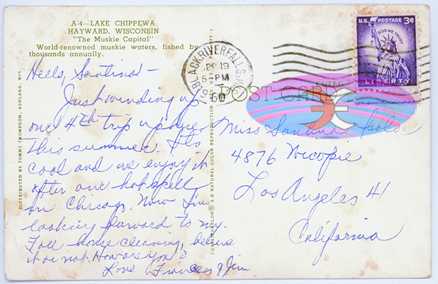 A-4-LAKE CHIPPEWA
HAYWARD, WISCONSIN
"The Muskie Capital"
World-renowned muskie waters, fished by
thousands annually.
Hello,
Just winding up
our 4th trip up here
this summer. It's
cool and we enjoy it
after one hot spell
in Chicago. Now I'm
looking forward to my
Fall house cleaning, believe
it or not. How are you?
Love Frances & Jim
DISTRIBUTED BY TOMMY THOMPSON, ASHLAND, WIS.
NATURAL COLOR REPRODUCTION
BLACK RIVER FALLS
19
5-PM
POST CARD
U.S. POSTAGE
3¢
IN GOD WE TRUST
LIBERTY
Miss
4876
Los Angeles 41
California